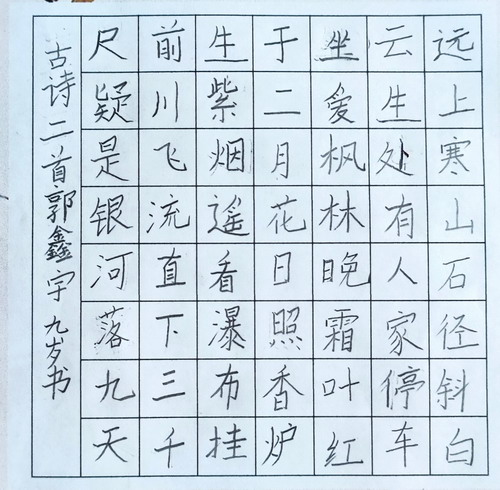 远上寒山石径斜白
云生处有人家停车
坐爱枫林晚霜叶红
于二月花日照香炉
生紫烟遥看瀑布挂
前川飞流直下三千
尺疑是银河落九天
古诗二首郭鑫宇九岁书